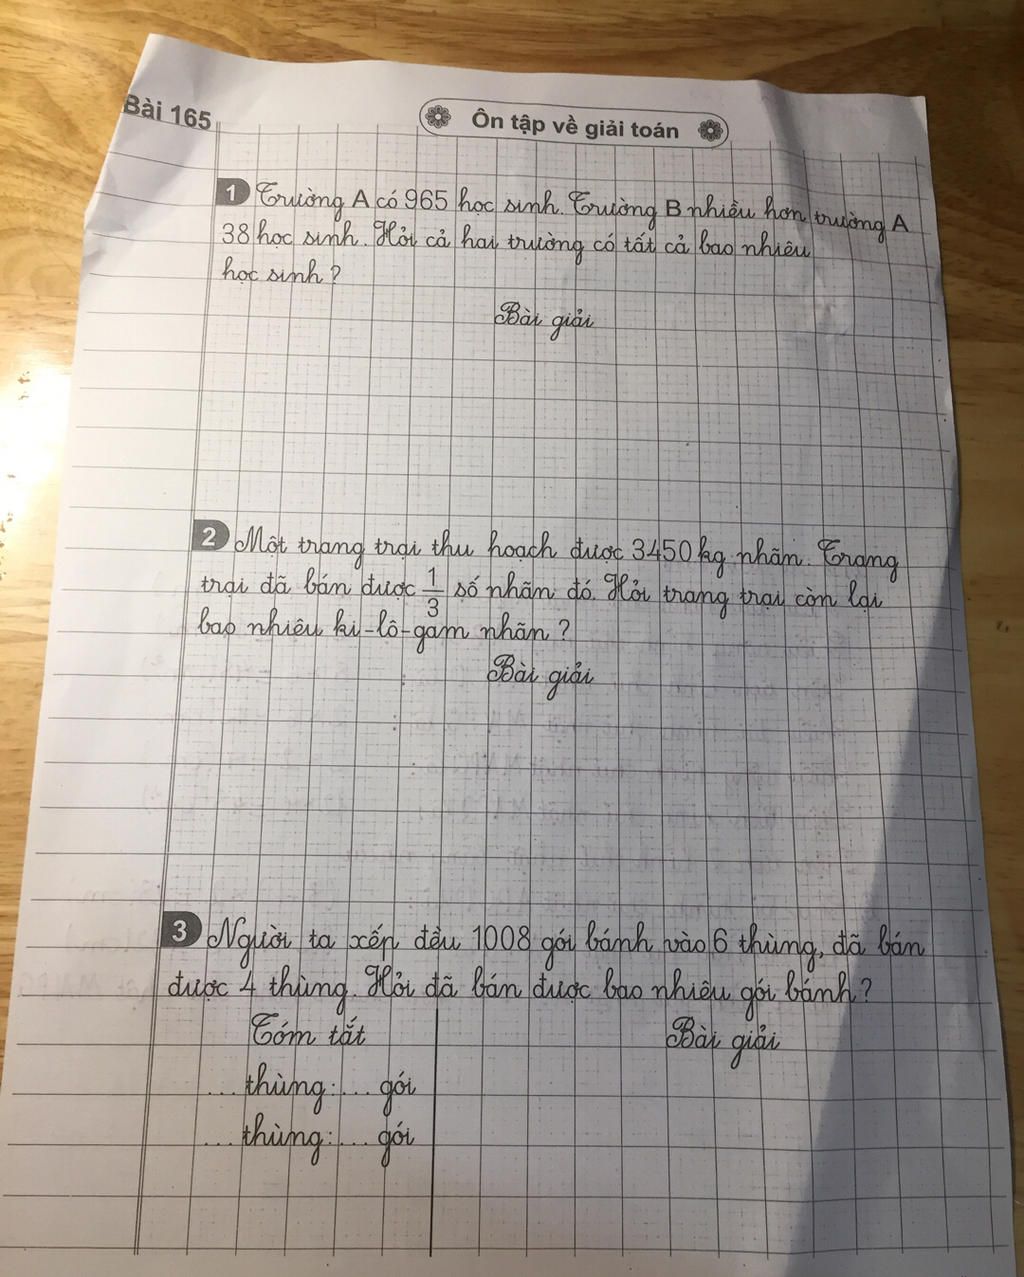 Bài 165
Ôn tập về giải toán
1 Trường A có 965 học sinh. Trường B nhiều hơn trường A
38 học sinh. Hỏi cả hai trường có tất cả bao nhiêu
học sinh?
Bài giải
2 Một trang trại thu hoạch được 3450 kg nhãn. Trang
trại đã bán được 1/3 số nhãn đó. Hỏi trang trại còn lại
bao nhiêu ki-lô-gam nhãn?
Bài giải
3 Người ta xếp đều 1008 gói bánh vào 6 thùng, đã bán
được 4 thùng. Hỏi đã bán được bao nhiêu gói bánh?
Tóm tắt
Bài giải
... thùng: ... gói
... thùng: ... gói